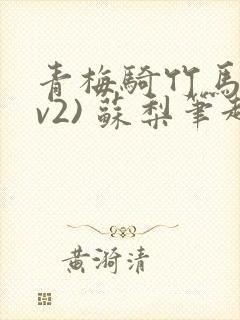 青梅騎竹馬
v2) 蘇梨筆趣
黃漪清